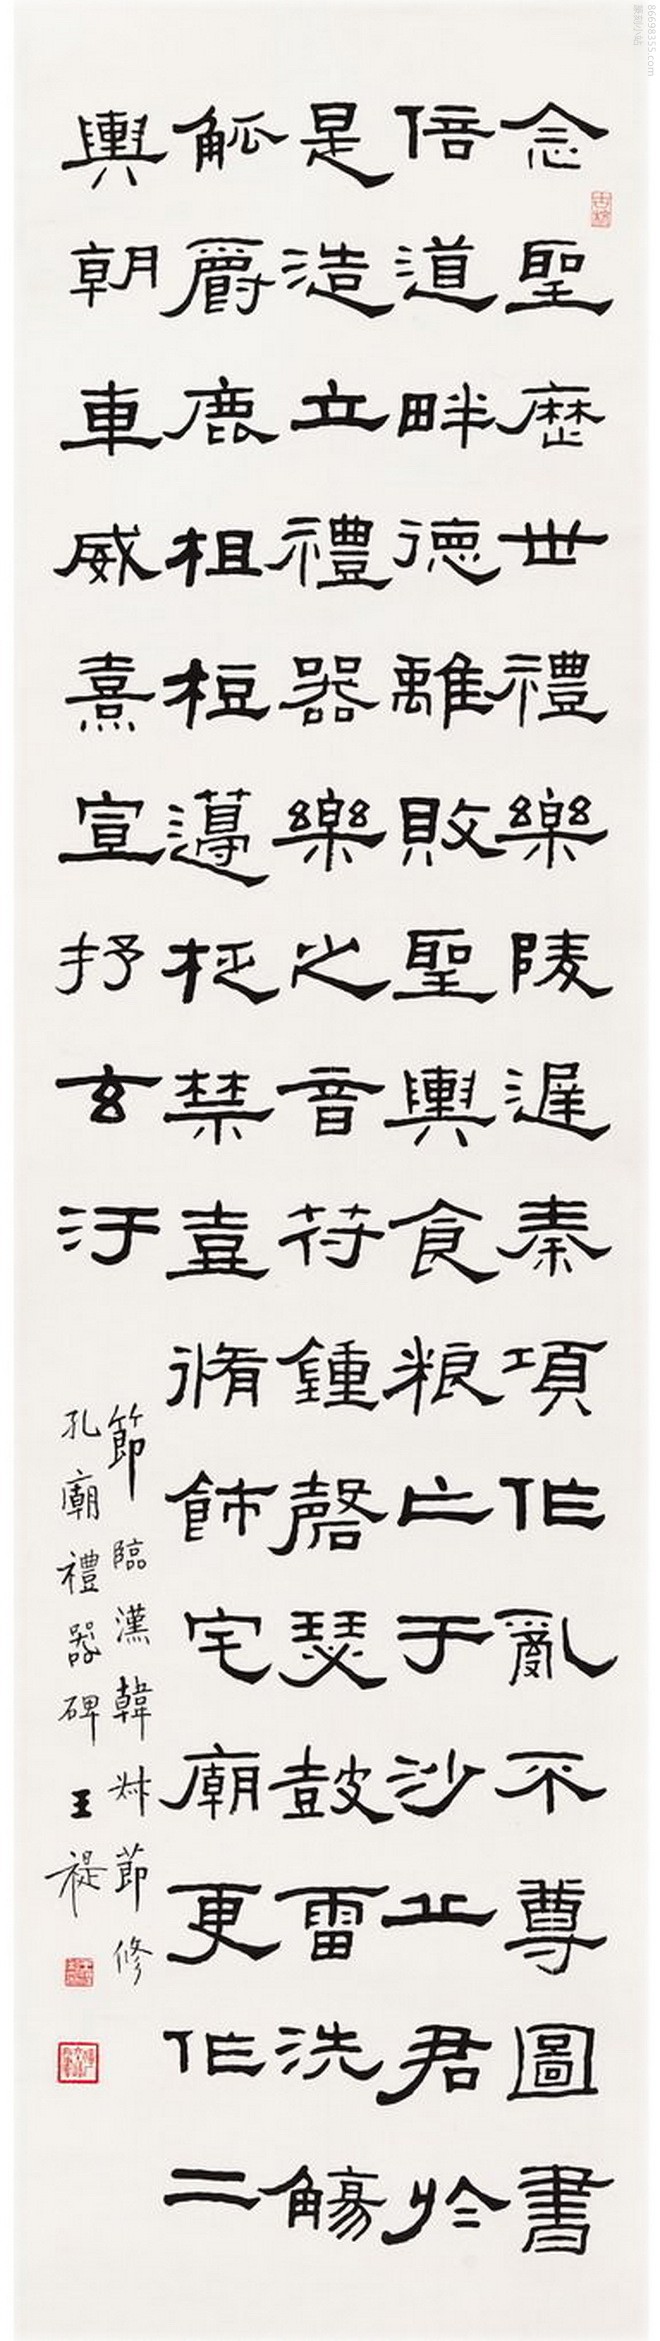 念聖歷世禮樂陵遲秦項作亂不尊圖書
倍道畔德離敗聖輿食粮亡于沙丘君於
是造立禮器樂之音符鍾磬瑟鼓雷洗觴
觚爵鹿柤梪籩柉禁壹脩飾宅廟更作二
輿朝車威熹宣抒玄汙
節臨漢韓叔節修
孔廟禮器碑王禔
86698355.com